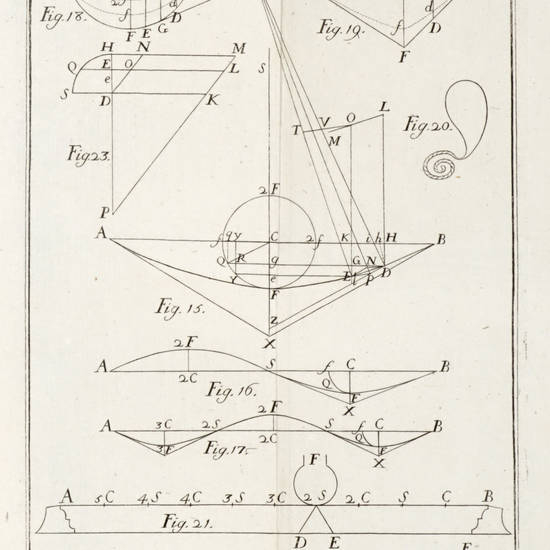 2f d d
Fig.18. f D Fig.19. f D
F E G F
H N M
Q E O L S
e
S D K
L
T V O
M
Fig.20.
Fig23.
P
2F
A f q y C 2f K i h H B
Q R g G N D
Y e E l p
F
Fig.15. Z
X
2F S f C
A 2C Q F B
Fig.16. X
2F
A 3C 2S S f C B
3F 2C Q F
Fig.17. X
F
A 5C 4S 4C 3S 3C 2S 2C S C B
Fig.21.
D E F